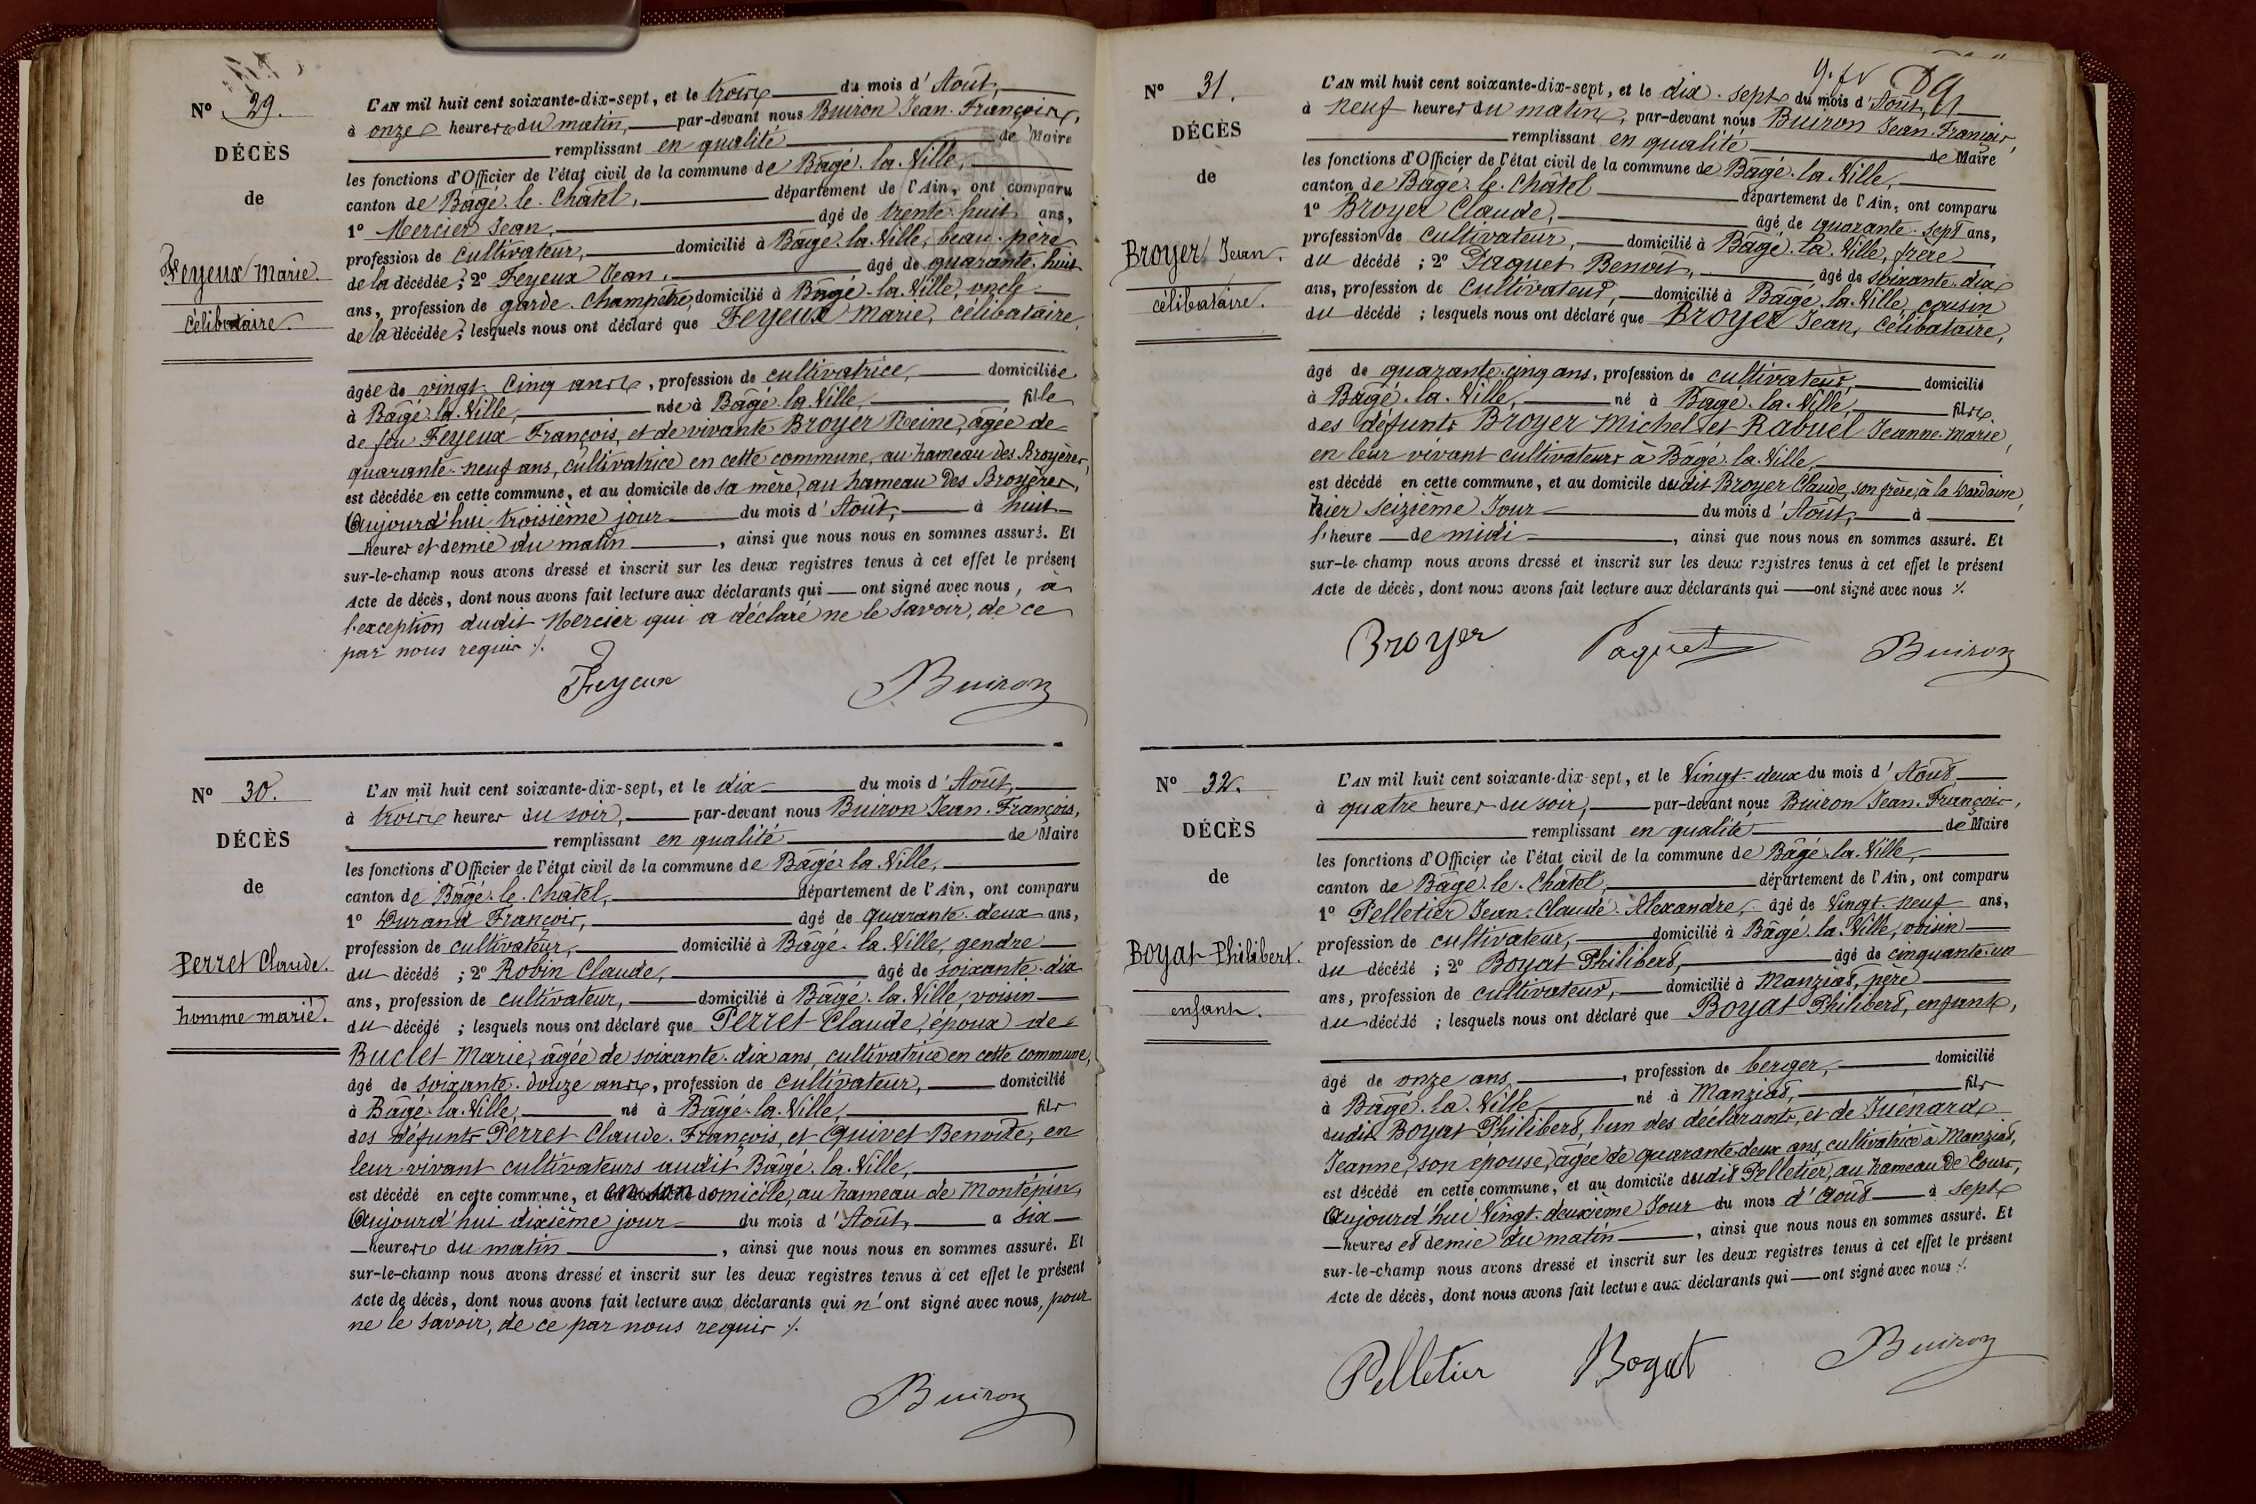 N° 29.
DÉCÈS
de
Feyeux Marie
célibataire.
L'AN mil huit cent soixante-dix-sept, et le trois du mois d'Août,
à onze heures du matin, par-devant nous Buiron Jean-François,
remplissant en qualité de Maire
les fonctions d'Officier de l'état civil de la commune de Bâgé-la-Ville,
canton de Bâgé-le-Châtel, département de l'Ain, ont comparu
1° Mercier Jean, âgé de trente-huit ans,
profession de cultivateur, domicilié à Bâgé-la-Ville, beau-père
de la décédée ; 2° Feyeux Jean, âgé de quarante-huit
ans, profession de garde-champêtre, domicilié à Bâgé-la-Ville, oncle
de la décédée ; lesquels nous ont déclaré que Feyeux Marie, célibataire,
âgée de vingt-cinq ans, profession de cultivatrice, domiciliée
à Bâgé-la-Ville, née à Bâgé-la-Ville, fille
de feu Feyeux François, et de vivante Broyer Reine, âgée de
quarante-neuf ans, cultivatrice en cette commune, au hameau des Broyères,
est décédée en cette commune, et au domicile de sa mère, au hameau des Broyères,
Aujourd'hui troisième jour du mois d'Août, à huit
heures et demie du matin, ainsi que nous nous en sommes assuré. Et
sur-le-champ nous avons dressé et inscrit sur les deux registres tenus à cet effet le présent
Acte de décès, dont nous avons fait lecture aux déclarants qui ont signé avec nous, a
l'exception dudit Mercier qui a déclaré ne le savoir, de ce
par nous requis ./.
Feyeux Buiron
N° 30.
DÉCÈS
de
Perret Claude.
homme marié.
L'AN mil huit cent soixante-dix-sept, et le dix du mois d'Août,
à trois heures du soir, par-devant nous Buiron Jean-François,
remplissant en qualité de Maire
les fonctions d'Officier de l'état civil de la commune de Bâgé-la-Ville,
canton de Bâgé-le-Châtel, département de l'Ain, ont comparu
1° Durand François, âgé de quarante-deux ans,
profession de cultivateur, domicilié à Bâgé-la-Ville, gendre
du décédé ; 2° Robin Claude, âgé de soixante-dix
ans, profession de cultivateur, domicilié à Bâgé-la-Ville, voisin
du décédé ; lesquels nous ont déclaré que Perret Claude, époux de
Buclet Marie, âgée de soixante-dix ans, cultivatrice en cette commune,
âgé de soixante-douze ans, profession de cultivateur, domicilié
à Bâgé-la-Ville, né à Bâgé-la-Ville, fils
des défunts Perret Claude-François, et Quivet Benoite, en
leur vivant cultivateurs audit Bâgé-la-Ville,
est décédé en cette commune, et en son domicile, au hameau de Montépin,
Aujourd'hui dixième jour du mois d'Août, à six
heures du matin, ainsi que nous nous en sommes assuré. Et
sur-le-champ nous avons dressé et inscrit sur les deux registres tenus à cet effet le présent
Acte de décès, dont nous avons fait lecture aux déclarants qui n'ont signé avec nous, pour
ne le savoir, de ce par nous requis ./.
Buiron
N° 31.
DÉCÈS
de
Broyer Jean.
célibataire.
L'AN mil huit cent soixante-dix-sept, et le dix-sept du mois d'Août,
à neuf heures du matin, par-devant nous Buiron Jean-François,
remplissant en qualité de Maire
les fonctions d'Officier de l'état civil de la commune de Bâgé-la-Ville,
canton de Bâgé-le-Châtel département de l'Ain, ont comparu
1° Broyer Claude, âgé de quarante-sept ans,
profession de cultivateur, domicilié à Bâgé-la-Ville, frère
du décédé ; 2° Paquet Benoit, âgé de soixante-dix
ans, profession de cultivateur, domicilié à Bâgé-la-Ville, cousin
du décédé ; lesquels nous ont déclaré que Broyer Jean, célibataire,
âgé de quarante-cinq ans, profession de cultivateur, domicilié
à Bâgé-la-Ville, né à Bâgé-la-Ville, fils
des défunts Broyer Michel et Rabuel Jeanne-Marie,
en leur vivant cultivateurs à Bâgé-la-Ville,
est décédé en cette commune, et au domicile dudit Broyer Claude, son frère, à la Dardaine,
hier seizième Jour du mois d'Août, à
l'heure de midi, ainsi que nous nous en sommes assuré. Et
sur-le-champ nous avons dressé et inscrit sur les deux registres tenus à cet effet le présent
Acte de décès, dont nous avons fait lecture aux déclarants qui ont signé avec nous ./.
Broyer Paquet Buiron
N° 32.
DÉCÈS
de
Boyat Philibert.
enfant.
L'AN mil huit cent soixante-dix-sept, et le Vingt-deux du mois d'Août
à quatre heures du soir, par-devant nous Buiron Jean-François,
remplissant en qualité de Maire
les fonctions d'Officier de l'état civil de la commune de Bâgé-la-Ville,
canton de Bâgé-le-Châtel, département de l'Ain, ont comparu
1° Pelletier Jean-Claude-Alexandre, âgé de Vingt-neuf ans,
profession de cultivateur, domicilié à Bâgé-la-Ville, voisin
du décédé ; 2° Boyat Philibert, âgé de cinquante-un
ans, profession de cultivateur, domicilié à Manziat, père
du décédé ; lesquels nous ont déclaré que Boyat Philibert, enfant,
âgé de onze ans, profession de berger, domicilié
à Bâgé-la-Ville né à Manziat, fils
dudit Boyat Philibert, l'un des déclarants, et de Guénard
Jeanne, son épouse, âgée de quarante-deux ans, cultivatrice à Manziat,
est décédé en cette commune, et au domicile dudit Pelletier, au hameau de Cours,
Aujourd'hui Vingt-deuxième Jour du mois d'Août à sept
heures et demie du matin, ainsi que nous nous en sommes assuré. Et
sur-le-champ nous avons dressé et inscrit sur les deux registres tenus à cet effet le présent
Acte de décès, dont nous avons fait lecture aux déclarants qui ont signé avec nous ./.
Pelletier Boyat Buiron